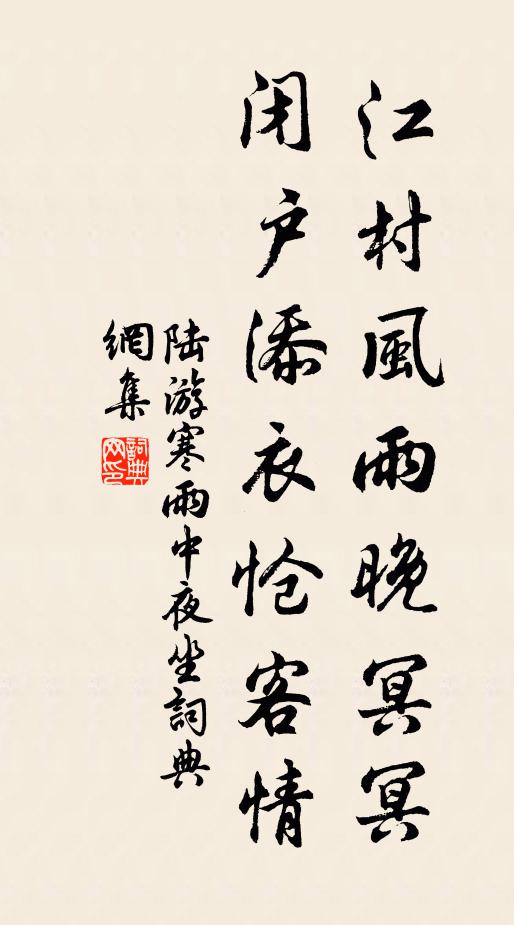 江村風雨晚冥冥
闭户添衣怆客情
陆游寒雨中夜坐詞典
網集
詞典
网印